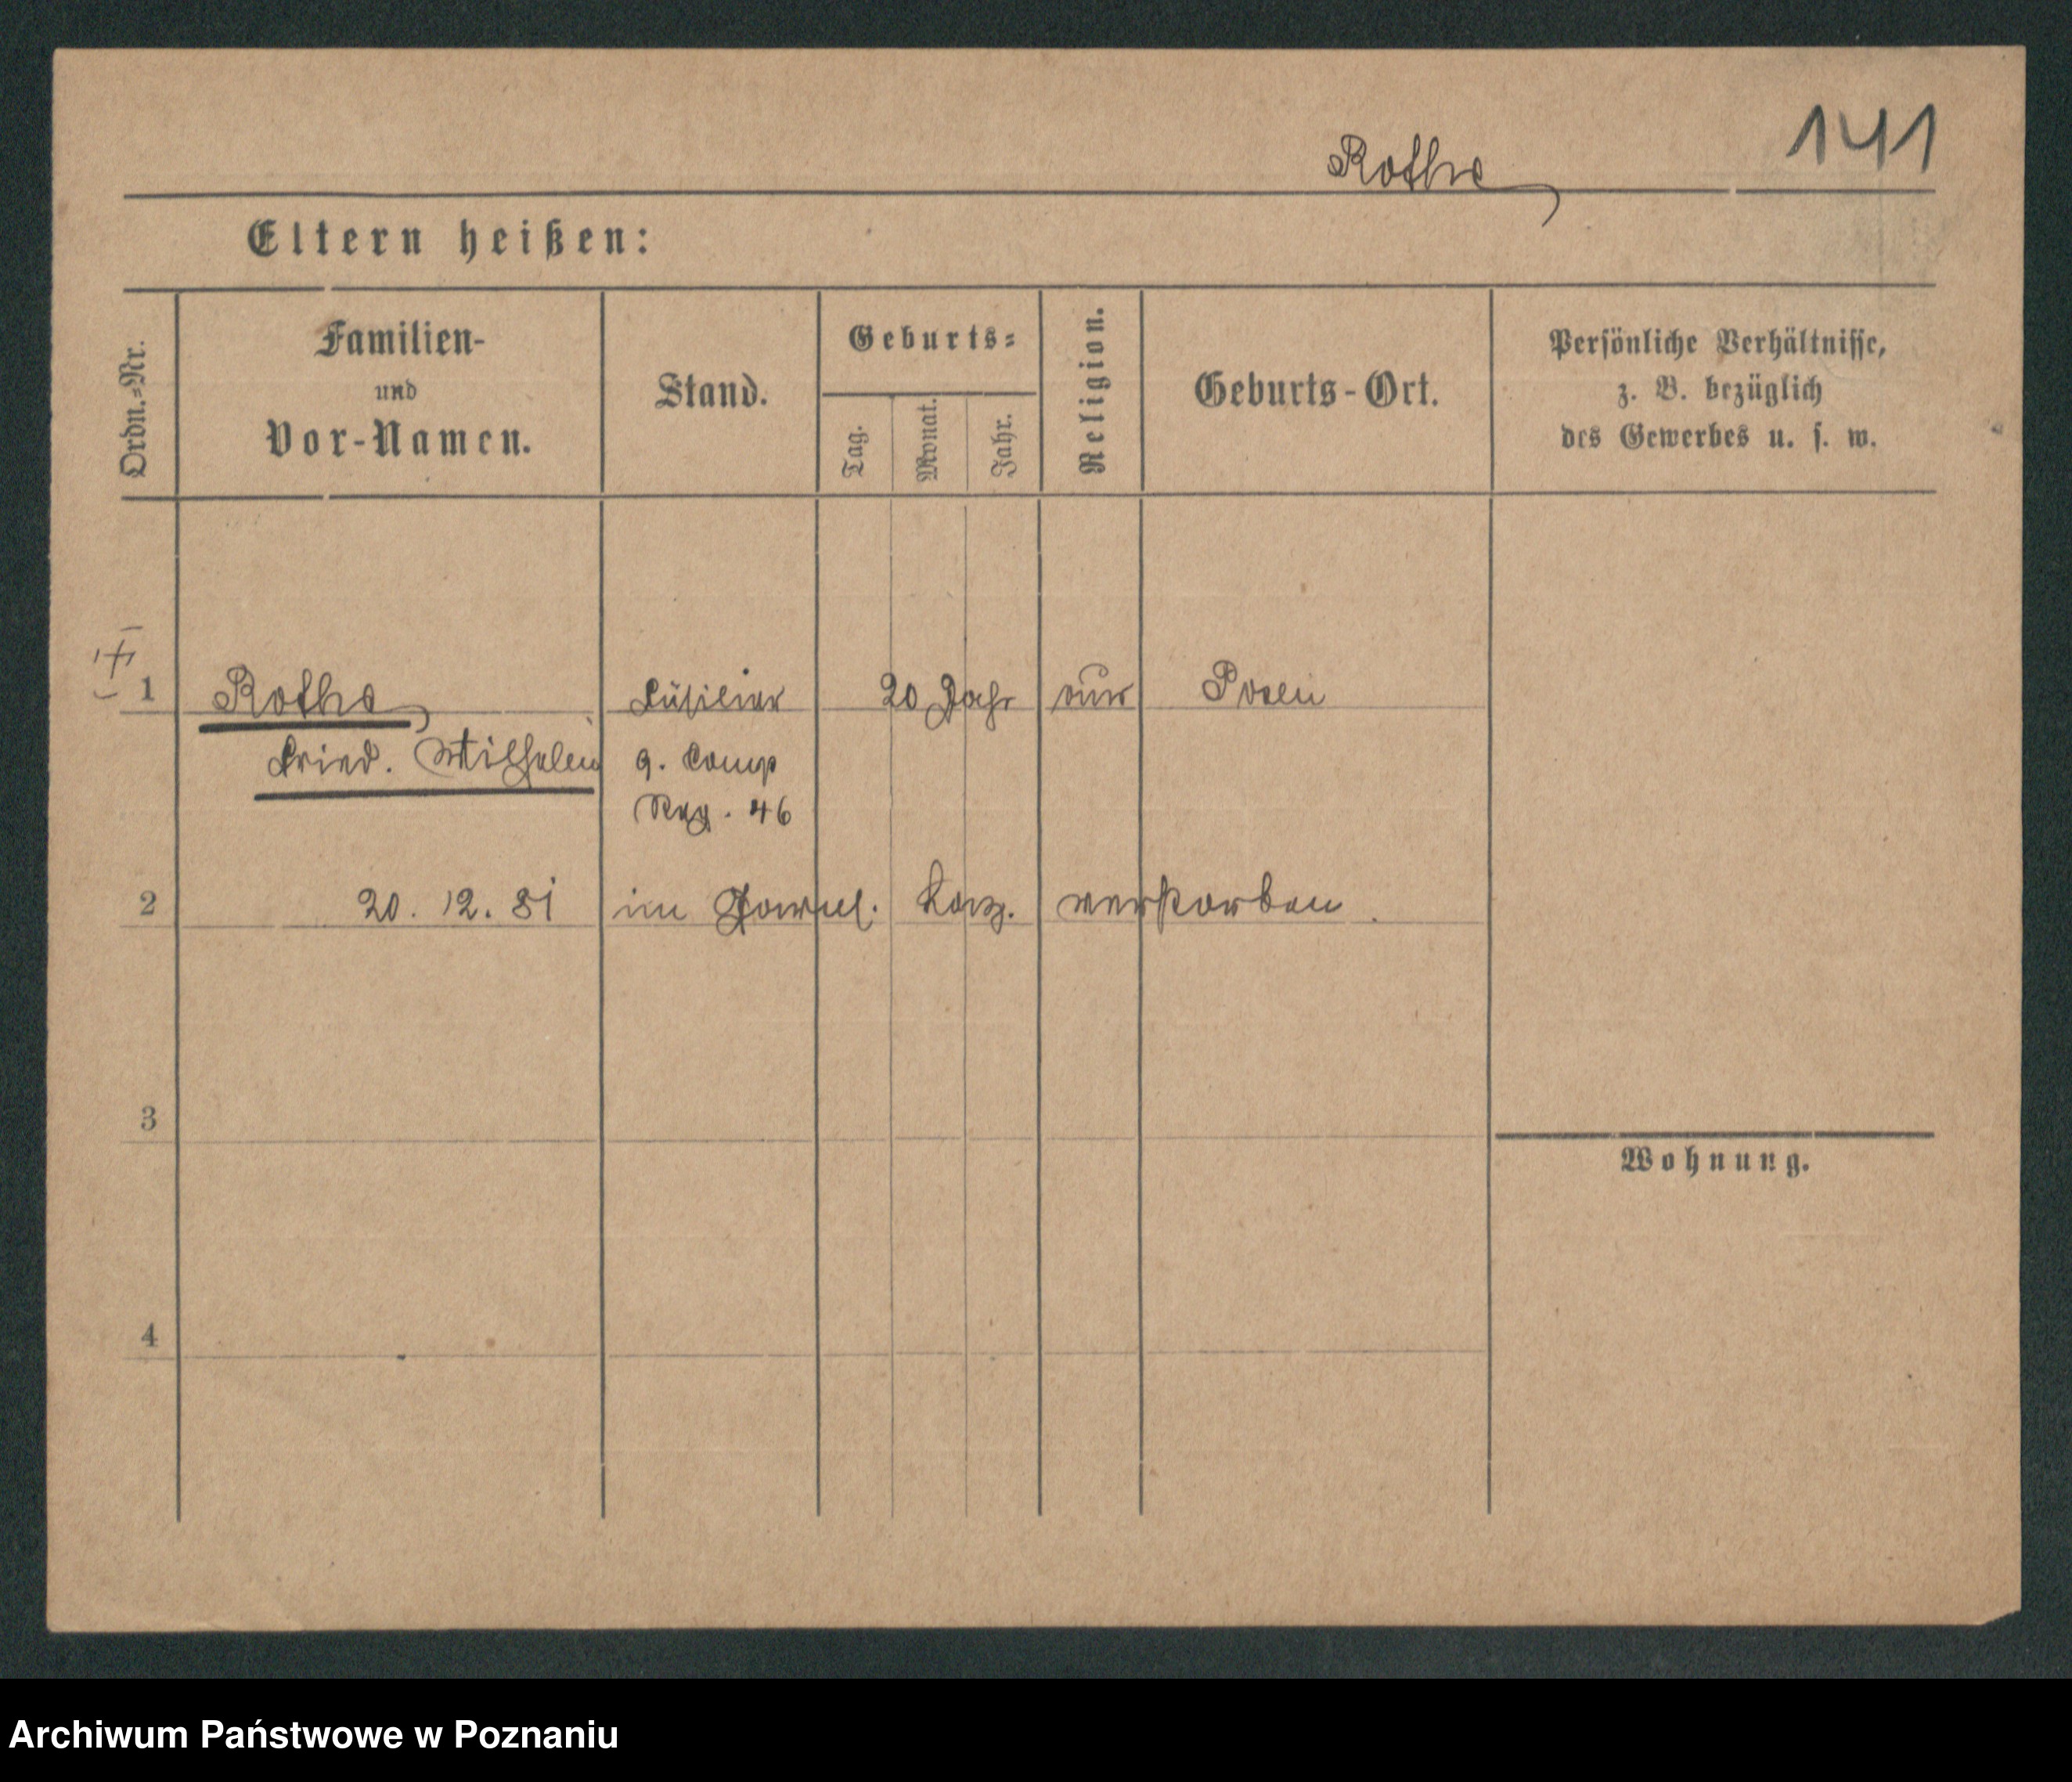 141
Rothe
Eltern heißen:
Ordn.=Nr.
Familien-
und
Vor-Namen.
Stand.
Geburts=
Tag.
Monat.
Jahr.
Religion.
Geburts-Ort.
Persönliche Verhältnisse,
z. B. bezüglich
des Gewerbes u. s. w.
1 Rothe Füsilier 20 Jahr Posen
Fried. Wilhelm 9. Comp
Reg. 46
2 20. 12. 81 im Garnis. Laz. verstorben.
3
Wohnung.
4
Archiwum Państwowe w Poznaniu